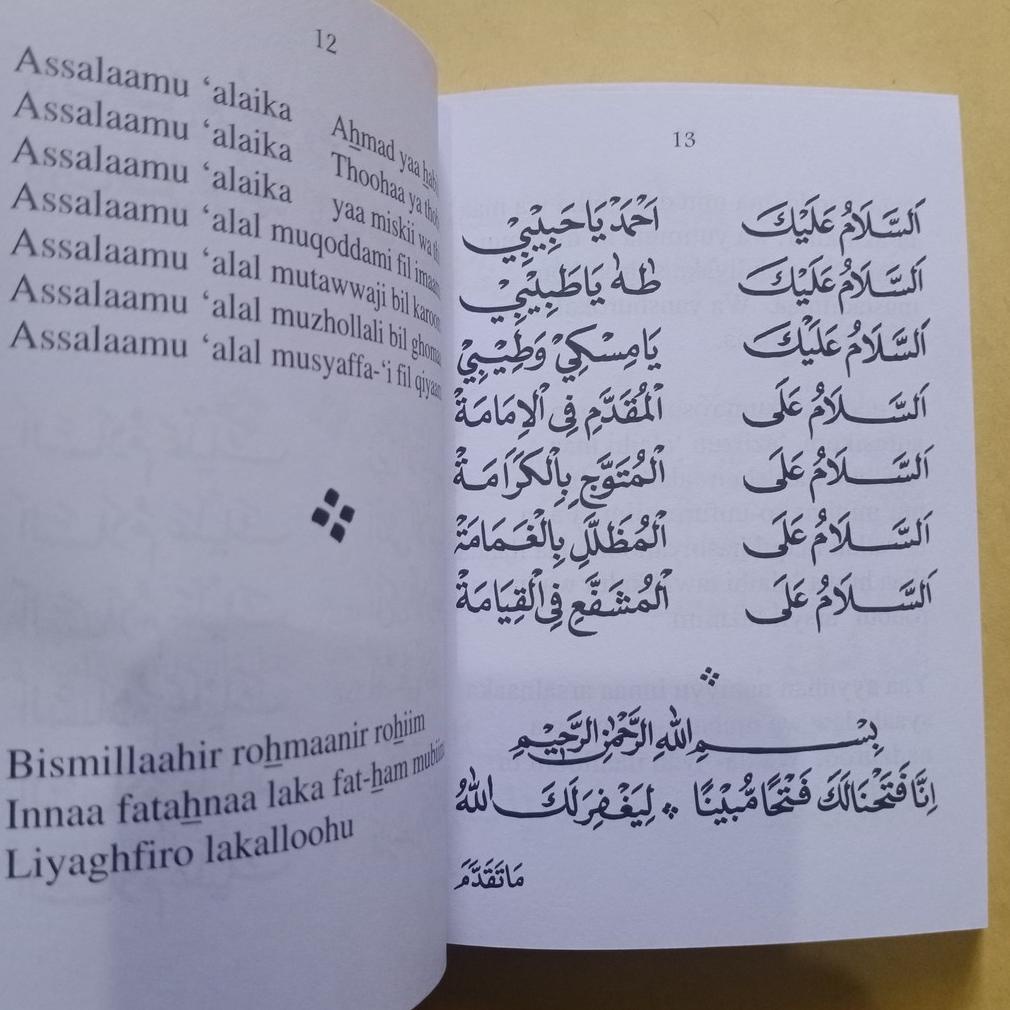 12
Assalaamu ‘alaika Ahmad yaa
Assalaamu ‘alaika Thoohaa ya
Assalaamu ‘alaika yaa miskii wa
Assalaamu ‘alal muqoddami fil
Assalaamu ‘alal mutawwaji bil
Assalaamu ‘alal muzhollali bil
Assalaamu ‘alal musyaffa-‘i fil
Bismillaahir rohmaanir rohiim
Innaa fatahnaa laka fat-ham
Liyaghfiro lakalloohu
13
اَلسَّلَامُ عَلَيْكَ اَحْمَدْ يَا حَبِيْبِيْ
اَلسَّلَامُ عَلَيْكَ طٰهٰ يَا طَبِيْبِيْ
اَلسَّلَامُ عَلَيْكَ يَا مِسْكِيْ وَطِيْبِيْ
اَلسَّلَامُ عَلَى الْمُقَدَّمِ فِى الْاِمَامَةْ
اَلسَّلَامُ عَلَى الْمُتَوَّجِ بِالْكَرَامَةْ
اَلسَّلَامُ عَلَى الْمُظَلَّلِ بِالْغَمَامَةْ
اَلسَّلَامُ عَلَى الْمُشَفَّعِ فِى الْقِيَامَةْ
بِسْمِ اللهِ الرَّحْمٰنِ الرَّحِيْمِ
اِنَّا فَتَحْنَا لَكَ فَتْحًا مُّبِيْنًا لِيَغْفِرَ لَكَ اللهُ
مَا تَقَدَّمَ